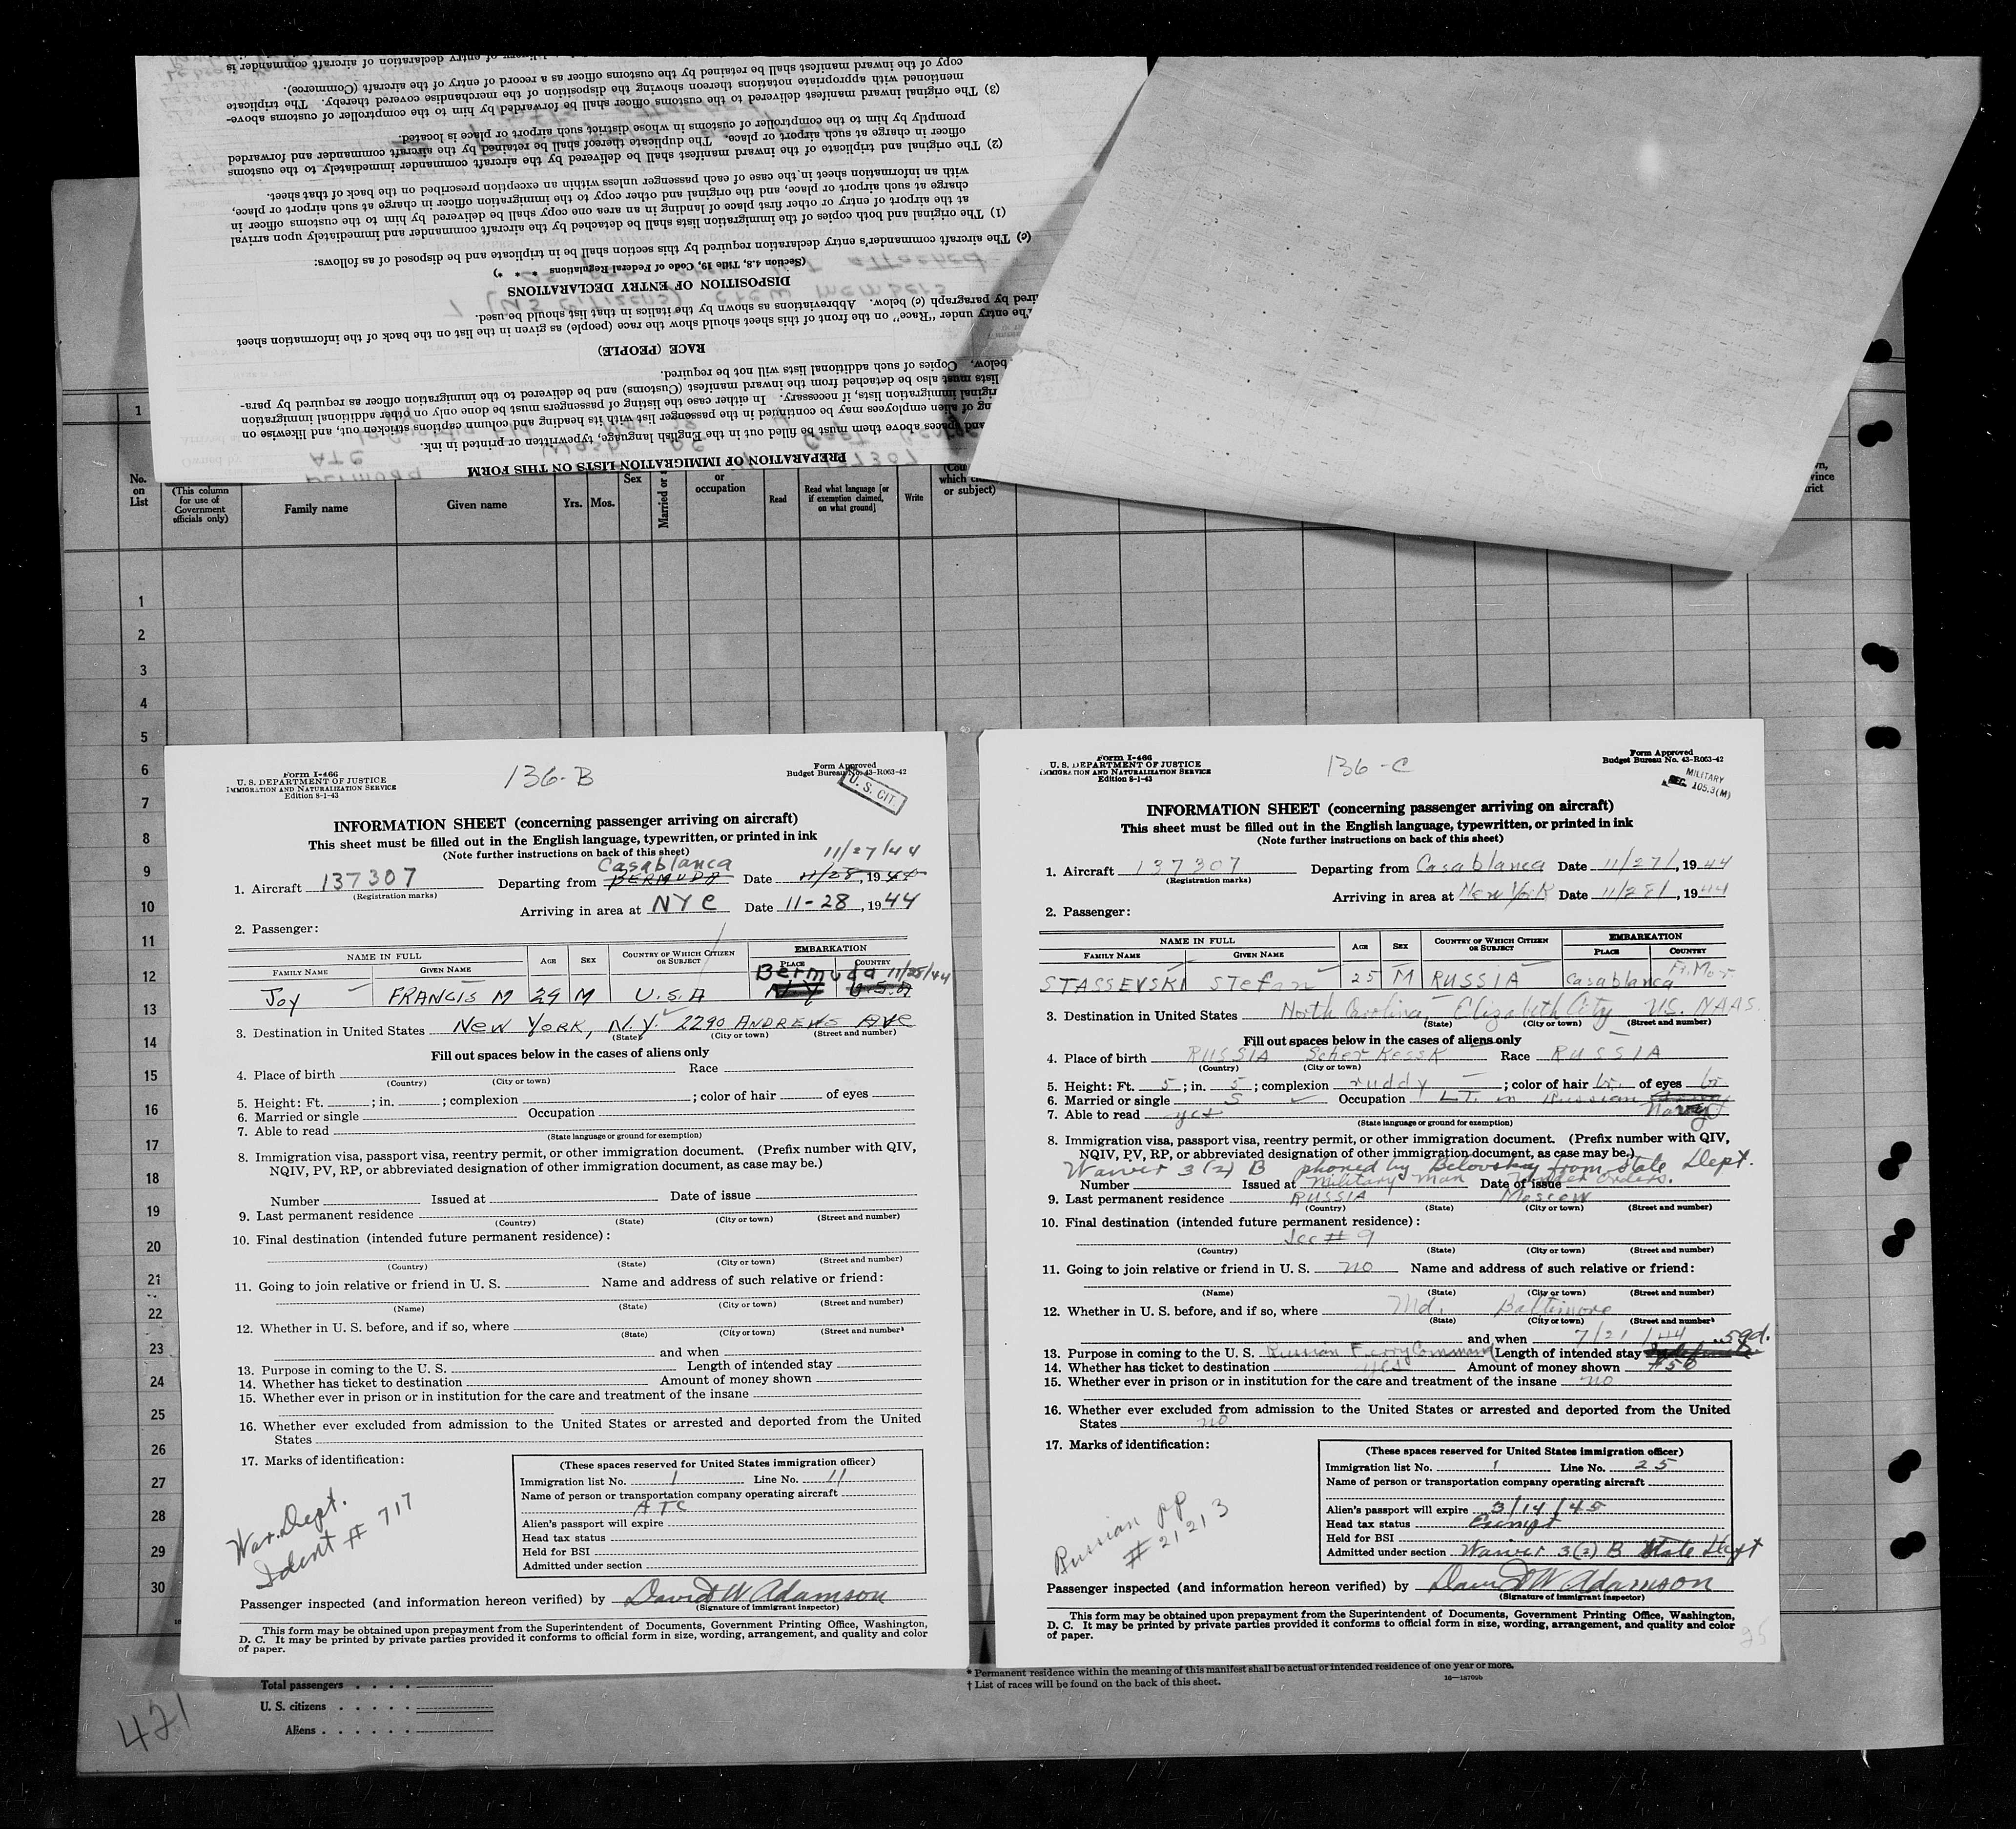 copy of the inward manifest shall be retained by the customs officer as a record of entry of the aircraft (Commerce).
mentioned with appropriate notations thereon showing the disposition of the merchandise covered thereby. The triplicate
(3) The original inward manifest delivered to the customs officer shall be forwarded by him to the comptroller of customs above-
promptly by him to the comptroller of customs in whose district such airport or place is located.
officer in charge at such airport or place. The duplicate thereof shall be retained by the aircraft commander and forwarded
(2) The original and triplicate of the inward manifest shall be delivered by the aircraft commander immediately to the customs
with an information sheet in the case of each passenger unless within an exception prescribed on the back of that sheet.
charge at such airport or place, and the original and other copy to the immigration officer in charge at such airport or place,
at the airport of entry or other first place of landing in an area one copy shall be delivered by him to the customs officer in
(1) The original and both copies of the immigration lists shall be detached by the aircraft commander and immediately upon arrival
(c) The aircraft commander's entry declaration required by this section shall be in triplicate and be disposed of as follows:
(Section 4.8, Title 19, Code of Federal Regulations * * *)
DISPOSITION OF ENTRY DECLARATIONS
ired by paragraph (c) below. Abbreviations as shown by the italics in that list should be used.
The entry under "Race" on the front of this sheet should show the race (people) as given in the list on the back of the information sheet
RACE (PEOPLE)
below. Copies of such additional lists will not be required.
lists must also be detached from the inward manifest (Customs) and be delivered to the immigration officer as required by para-
riginal immigration lists, if necessary. In either case the listing of passengers must be done only on other additional immigration
ng of alien employees may be continued in the passenger list with its heading and column captions stricken out, and likewise on
and spaces above them must be filled out in the English language, typewritten or printed in ink.
PREPARATION OF IMMIGRATION LISTS ON THIS FORM
1
No. on List
(This column for use of Government officials only)
Family name
Given name
Yrs. Mos.
Sex
Married or s
or occupation
Read
Read what language [or if exemption claimed, on what ground]
Write
which
or subject)
1
2
3
4
5
6
7
8
9
10
11
12
13
14
15
16
17
18
19
20
21
22
23
24
25
26
27
28
29
30
Form I-466
U. S. DEPARTMENT OF JUSTICE
IMMIGRATION AND NATURALIZATION SERVICE
Edition 8-1-43
136-B
Form Approved
Budget Bureau No. 43-R063-42
U. S. CIT.
INFORMATION SHEET (concerning passenger arriving on aircraft)
This sheet must be filled out in the English language, typewritten, or printed in ink
(Note further instructions on back of this sheet)
11/27/44
Casablanca
1. Aircraft 137307 Departing from BERMUDA Date 11/28, 1944
(Registration marks)
Arriving in area at NYC Date 11-28, 1944
2. Passenger:
NAME IN FULL AGE SEX COUNTRY OF WHICH CITIZEN OR SUBJECT EMBARKATION
FAMILY NAME GIVEN NAME PLACE COUNTRY
Bermuda 11/25/44
Joy FRANCIS M 29 M U.S.A N.Y U.S.A
3. Destination in United States New York, N.Y. 2290 ANDREWS AVE
(State) (City or town) (Street and number)
Fill out spaces below in the cases of aliens only
4. Place of birth Race
(Country) (City or town)
5. Height: Ft. ; in. ; complexion ; color of hair of eyes
6. Married or single Occupation
7. Able to read
(State language or ground for exemption)
8. Immigration visa, passport visa, reentry permit, or other immigration document. (Prefix number with QIV,
NQIV, PV, RP, or abbreviated designation of other immigration document, as case may be.)
Number Issued at Date of issue
9. Last permanent residence
(Country) (State) (City or town) (Street and number)
10. Final destination (intended future permanent residence):
(Country) (State) (City or town) (Street and number)
11. Going to join relative or friend in U. S. Name and address of such relative or friend:
(Name) (State) (City or town) (Street and number)
12. Whether in U. S. before, and if so, where
(State) (City or town) (Street and number)
and when
13. Purpose in coming to the U. S. Length of intended stay
14. Whether has ticket to destination Amount of money shown
15. Whether ever in prison or in institution for the care and treatment of the insane
16. Whether ever excluded from admission to the United States or arrested and deported from the United
States
17. Marks of identification:
War. Dept.
Ident # 717
(These spaces reserved for United States immigration officer)
Immigration list No. 1 Line No. 11
Name of person or transportation company operating aircraft
ATC
Alien's passport will expire
Head tax status
Held for BSI
Admitted under section
Passenger inspected (and information hereon verified) by David W Adamson
(Signature of immigrant inspector)
This form may be obtained upon prepayment from the Superintendent of Documents, Government Printing Office, Washington,
D. C. It may be printed by private parties provided it conforms to official form in size, wording, arrangement, and quality and color
of paper.
Form I-466
U. S. DEPARTMENT OF JUSTICE
IMMIGRATION AND NATURALIZATION SERVICE
Edition 8-1-43
136-C
Form Approved
Budget Bureau No. 43-R063-42
MILITARY
SEC. 105.3(M)
INFORMATION SHEET (concerning passenger arriving on aircraft)
This sheet must be filled out in the English language, typewritten, or printed in ink
(Note further instructions on back of this sheet)
1. Aircraft 137307 Departing from Casablanca Date 11/27/, 1944
(Registration marks)
Arriving in area at New York Date 11/28/, 1944
2. Passenger:
NAME IN FULL AGE SEX COUNTRY OF WHICH CITIZEN OR SUBJECT EMBARKATION
FAMILY NAME GIVEN NAME PLACE COUNTRY
STASSEVSKI Stefan 25 M RUSSIA Casablanca Fr. Mor.
3. Destination in United States North Carolina, Elizabeth City U.S. NAAS
(State) (City or town) (Street and number)
Fill out spaces below in the cases of aliens only
4. Place of birth RUSSIA Scherkessk Race RUSSIA
(Country) (City or town)
5. Height: Ft. 5; in. 5; complexion ruddy; color of hair br. of eyes br
6. Married or single S Occupation LT. in Russian Navy
7. Able to read yes
(State language or ground for exemption)
8. Immigration visa, passport visa, reentry permit, or other immigration document. (Prefix number with QIV,
NQIV, PV, RP, or abbreviated designation of other immigration document, as case may be.)
Waiver 3(2) B phoned by Belovsky from State Dept.
Number Issued at Military man Date of issue under orders.
9. Last permanent residence RUSSIA Moscow
(Country) (State) (City or town) (Street and number)
10. Final destination (intended future permanent residence):
See # 9
(Country) (State) (City or town) (Street and number)
11. Going to join relative or friend in U. S. no Name and address of such relative or friend:
(Name) (State) (City or town) (Street and number)
12. Whether in U. S. before, and if so, where Md. Baltimore
(State) (City or town) (Street and number)
and when 7/21/44
13. Purpose in coming to the U. S. Russian Ferry Command Length of intended stay
14. Whether has ticket to destination yes Amount of money shown $50
15. Whether ever in prison or in institution for the care and treatment of the insane no
16. Whether ever excluded from admission to the United States or arrested and deported from the United
States no
17. Marks of identification:
Russian PP
# 21213
(These spaces reserved for United States immigration officer)
Immigration list No. 1 Line No. 25
Name of person or transportation company operating aircraft
Alien's passport will expire 3/14/45
Head tax status Exempt
Held for BSI
Admitted under section Waiver 3(2) B State Dept
Passenger inspected (and information hereon verified) by David W Adamson
(Signature of immigrant inspector)
This form may be obtained upon prepayment from the Superintendent of Documents, Government Printing Office, Washington,
D. C. It may be printed by private parties provided it conforms to official form in size, wording, arrangement, and quality and color
of paper.
25
* Permanent residence within the meaning of this manifest shall be actual or intended residence of one year or more.
† List of races will be found on the back of this sheet.
Total passengers
U. S. citizens
Aliens
421